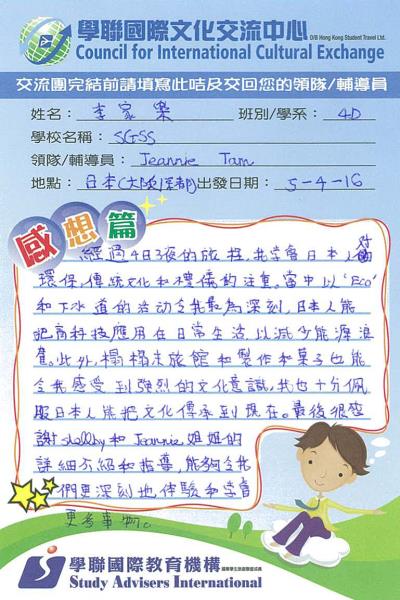 學聯國際文化交流中心 D/B Hong Kong Student Travel Ltd.
Council for International Cultural Exchange
交流團完結前請填寫此咭及交回您的領隊/輔導員
姓名： 李家樂 班別/學系： 4D
學校名稱： SGSS
領隊/輔導員： Jeannie Tam
地點： 日本(大阪京都) 出發日期： 5-4-16
感想篇
經過4日3夜的旅程，我學習日本人對
環保，傳統文化和禮儀的注重。當中以'Eco'
和下水道的活動令我最為深刻，日本人能
把高科技應用在日常生活，以減少能源浪
費。此外，榻榻米旅館和製作和菓子也能
令我感受到強烈的文化意識，我也十分佩
服日本人能把文化傳承到現在。最後很感
謝Shellby和Jeannie姐姐的
詳細介紹和指導，能夠令我
們更深刻地體驗和學習
更多事物。
學聯國際教育機構
Study Advisers International